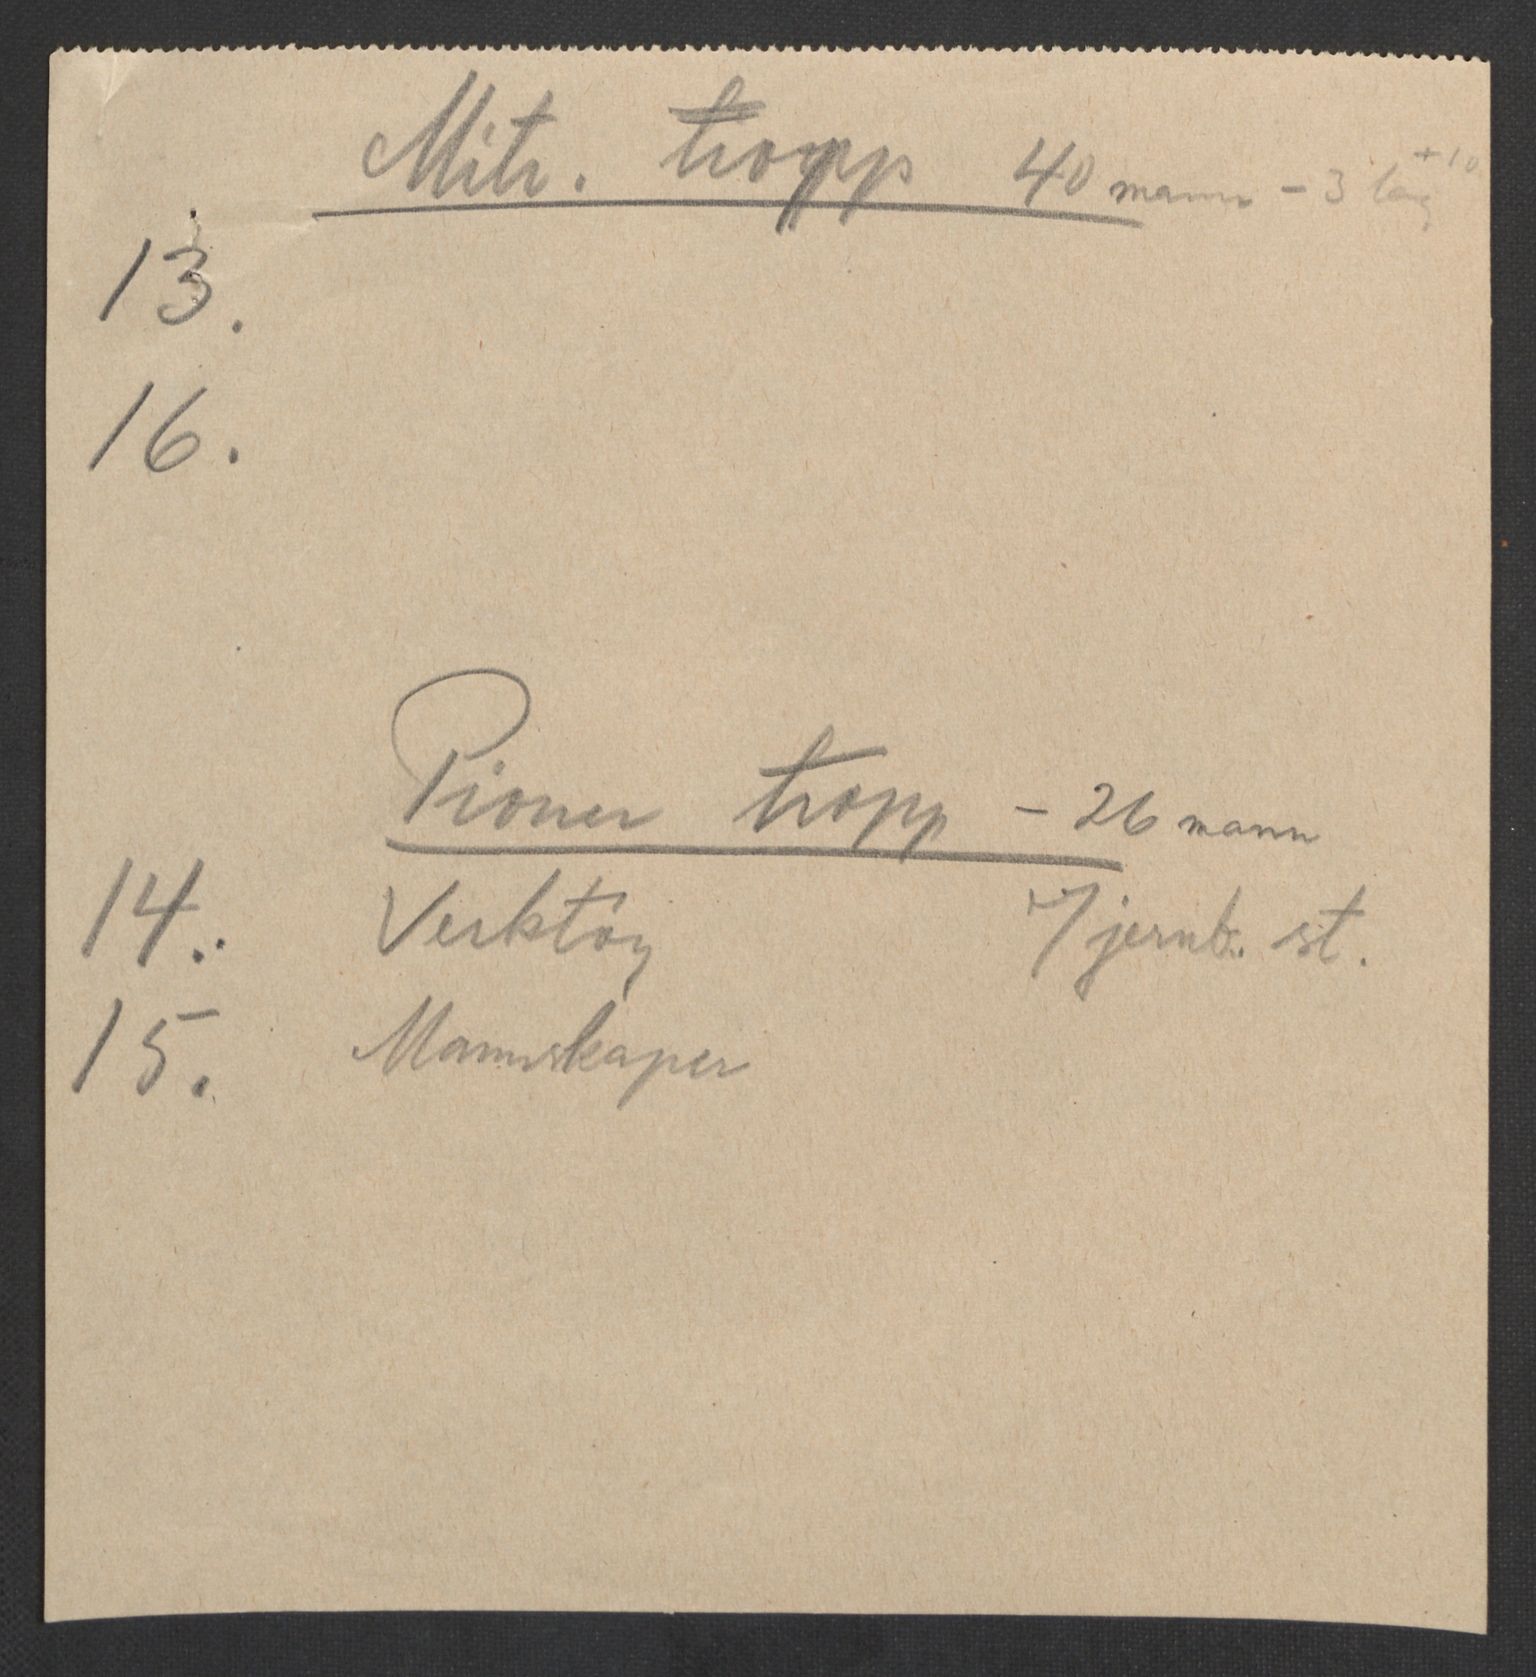 Mitr. tropp 40 mann - 3 lag +10
13.
16.
Pioner tropp - 26 mann
14. Verktöy 7 jernb. st.
15. Mannskaper